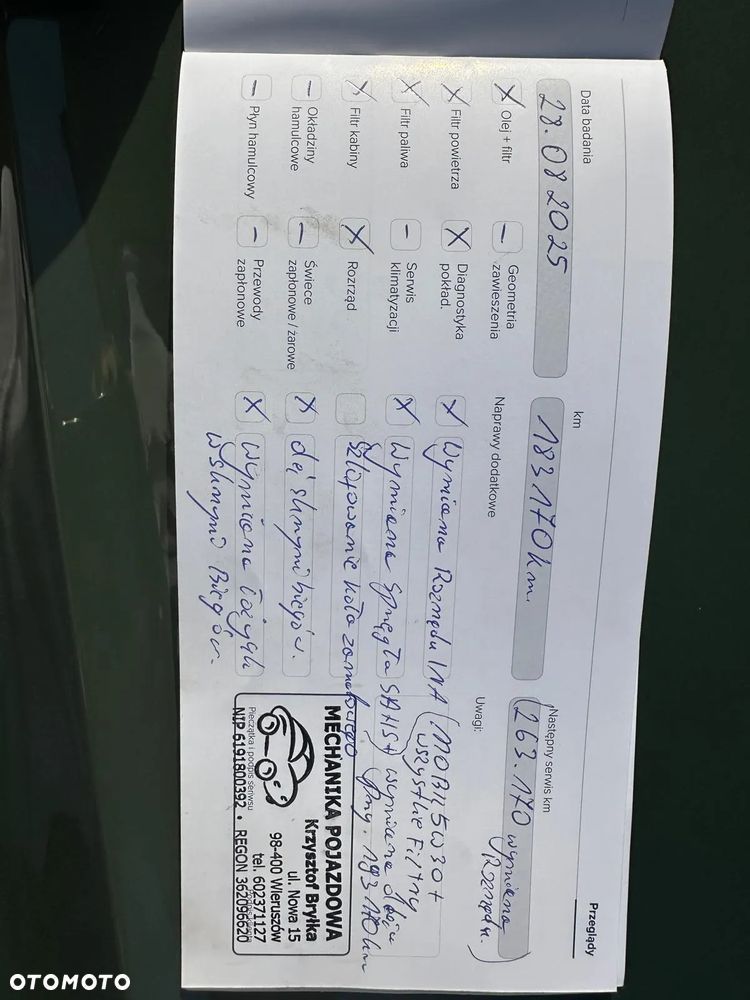 Przeglądy
Data badania
28.08.2025
km
183170km.
Następny serwis km
(263.170 wymiana
Rozrządu.)
X Olej + filtr
– Geometria zawieszenia
Naprawy dodatkowe
Uwagi:
X Filtr powietrza
X Diagnostyka pokład.
X Wymiana Rozrządu INA (MOBIL 5W30 +
wszystkie Filtry
X Filtr paliwa
– Serwis klimatyzacji
X Wymiana Sprzęgła SAHS+ wymiana oleju
X Filtr kabiny
X Rozrząd
Szlifowanie koła zamachowego
przy. 183170km
– Okładziny hamulcowe
– Świece zapłonowe / żarowe
X do skrzyni biegów.
– Płyn hamulcowy
– Przewody zapłonowe
X Wymiana łożysk
w skrzyni Biegów.
MECHANIKA POJAZDOWA
Krzysztof Bryłka
ul. Nowa 15
98-400 Wieruszów
tel. 602371127
Pieczątka i podpis serwisu
NIP 6191800392 • REGON 362096620
OTOMOTO